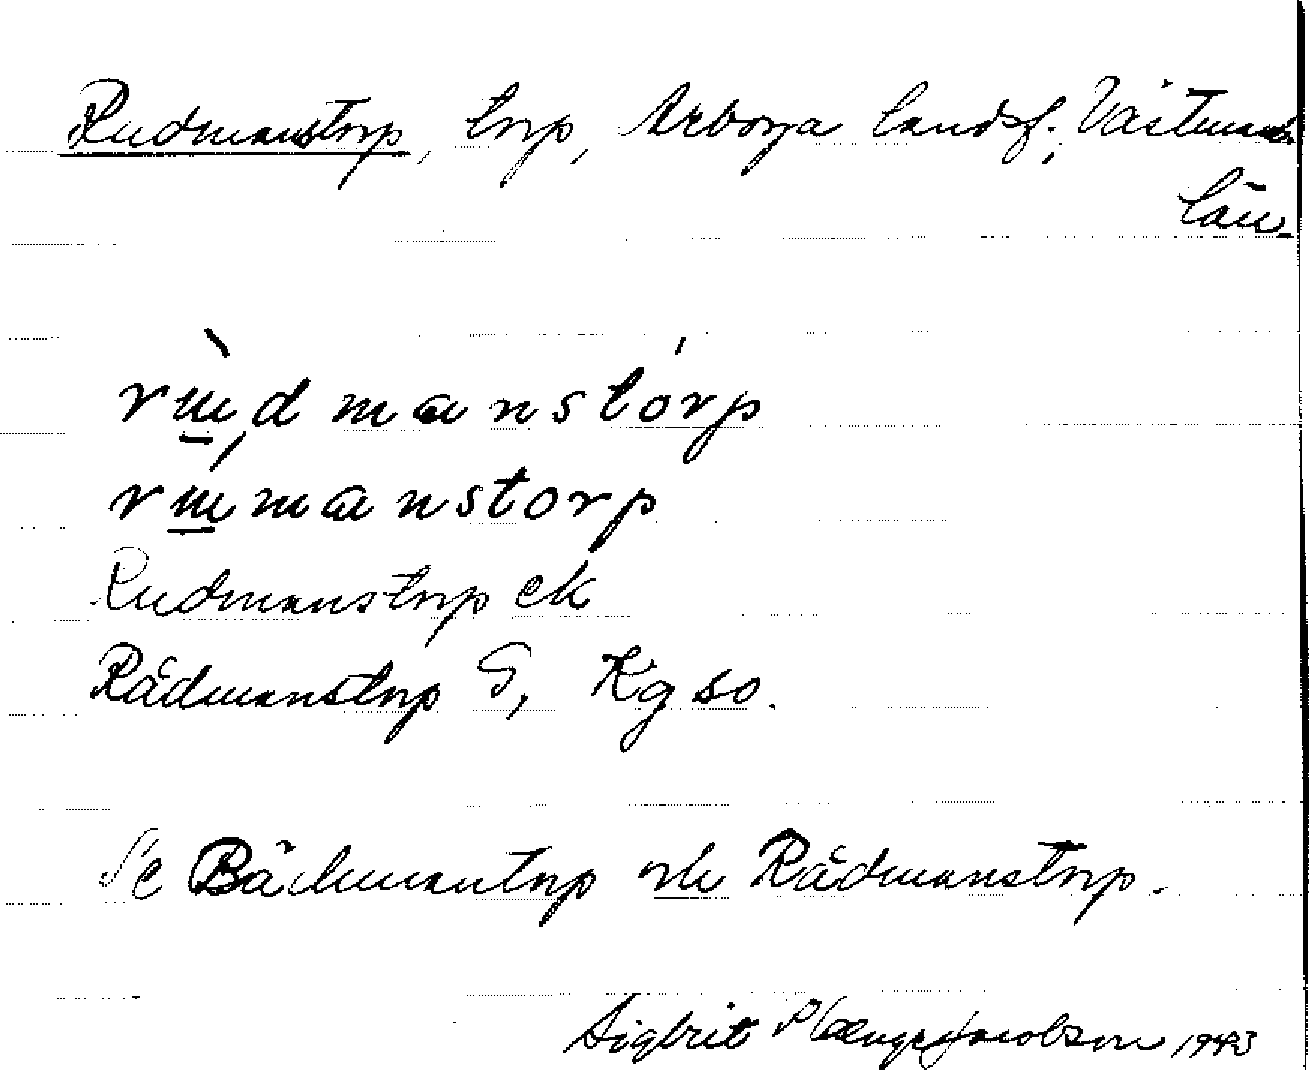 Rudmanstorp, torp, Arboga landsf., Västmanl.
län.
rɯ̀dmanstórp
rɯ́manstorp
Rudmanstorp ek
Rådmanstorp G, Kg so.
Se Bäckmantorp och Rådmanstorp.
Sigbrit Plænge Jacobson 1943